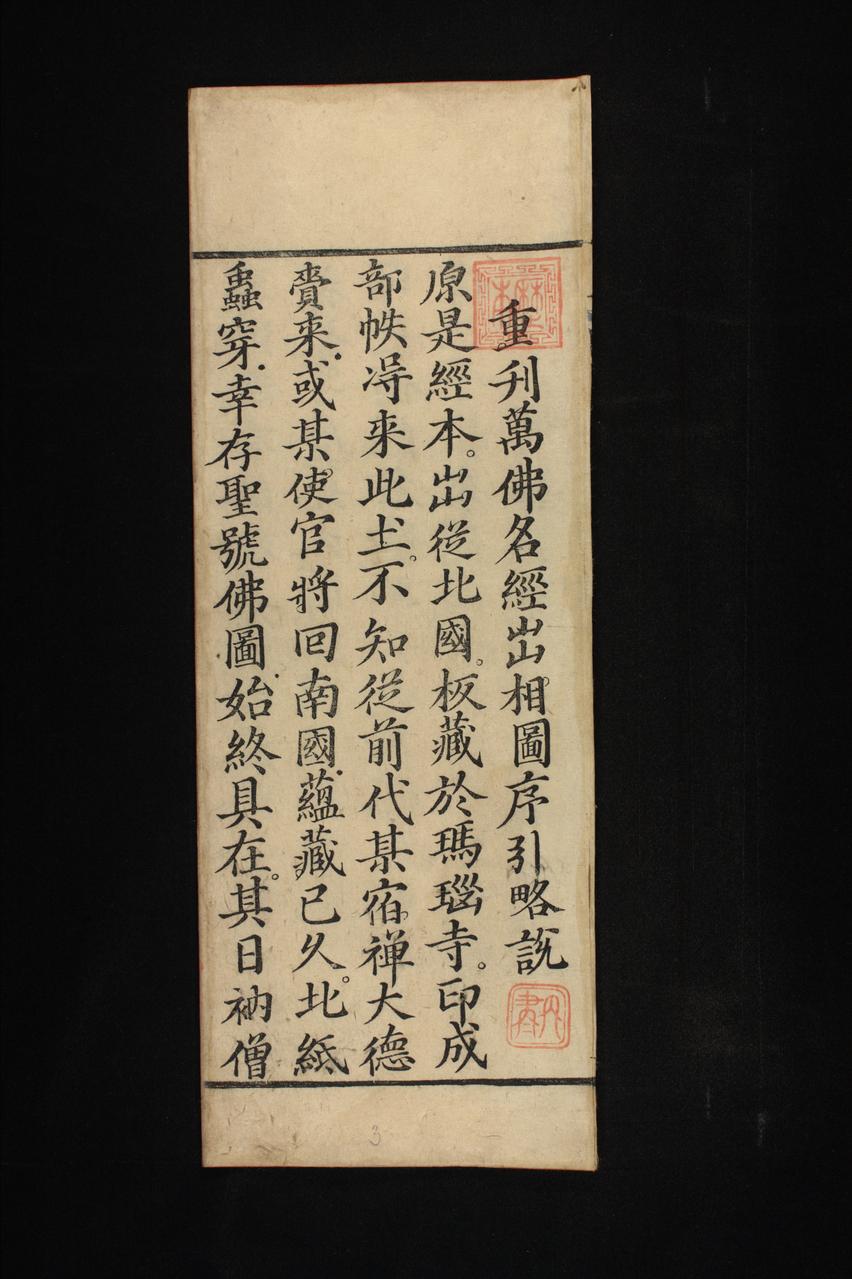 重刋萬佛名經出相圖序引略說
原是經本。出從北國。板藏於瑪瑙寺。印成
部帙淂来此土。不知從前代某宿。禅大德
賫来。或某使官將回南國。蘊藏已久。北紙
蟲穿。幸存聖號佛圖。始終具在。其日衲僧
3